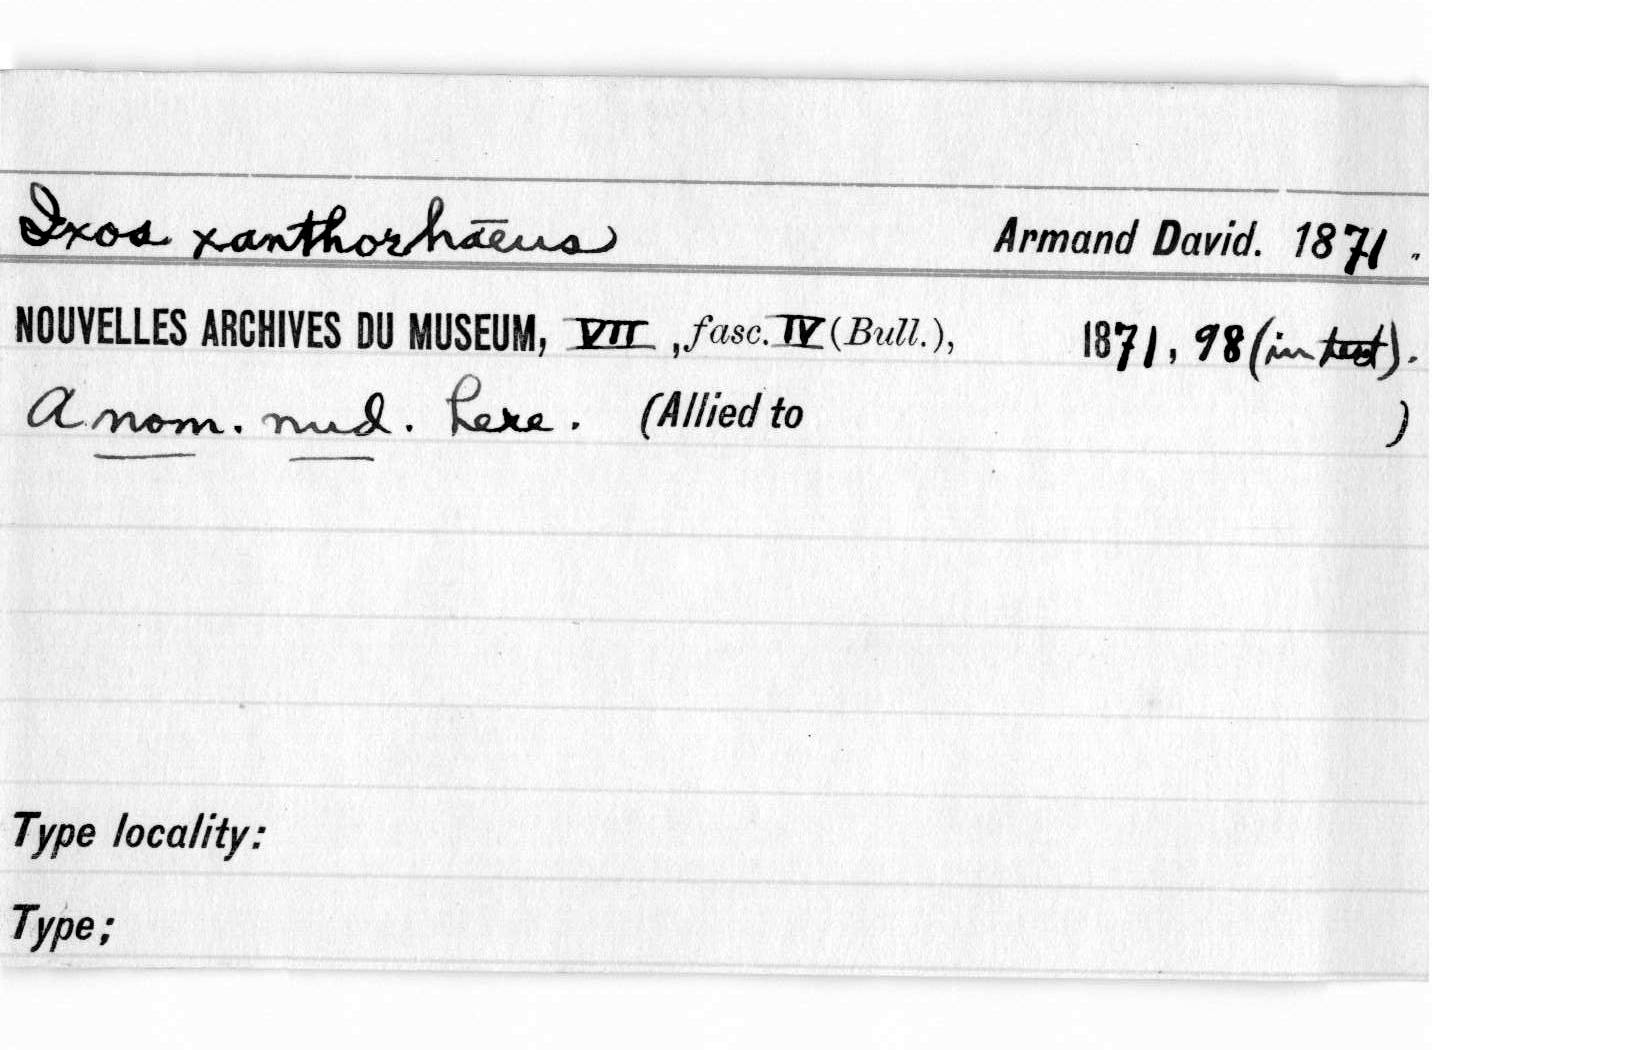 Ixos xanthorhāeus Armand David. 1871.
NOUVELLES ARCHIVES DU MUSEUM, VII, fasc. IV (Bull.), 1871, 98 (in text).
A nom. nud. here. (Allied to )
Type locality:
Type;